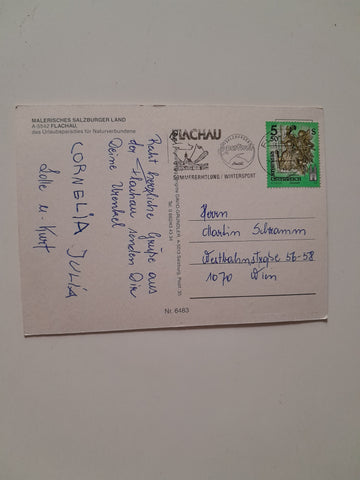 MALERISCHES SALZBURGER LAND
A-5542 FLACHAU,
das Urlaubsparadies für Naturverbundene
Recht herzliche Grüße aus
der Flachau senden Dir
Deine Urenkel
CORNELIA JULIA
Lilli u. Kurt
Nr. 6483
FLACHAU
SOMMERERHOLUNG / WINTERSPORT
5 S
ÖSTERREICH
Herrn
Martin Schramm
Westbahnstraße 56-58
1070 Wien